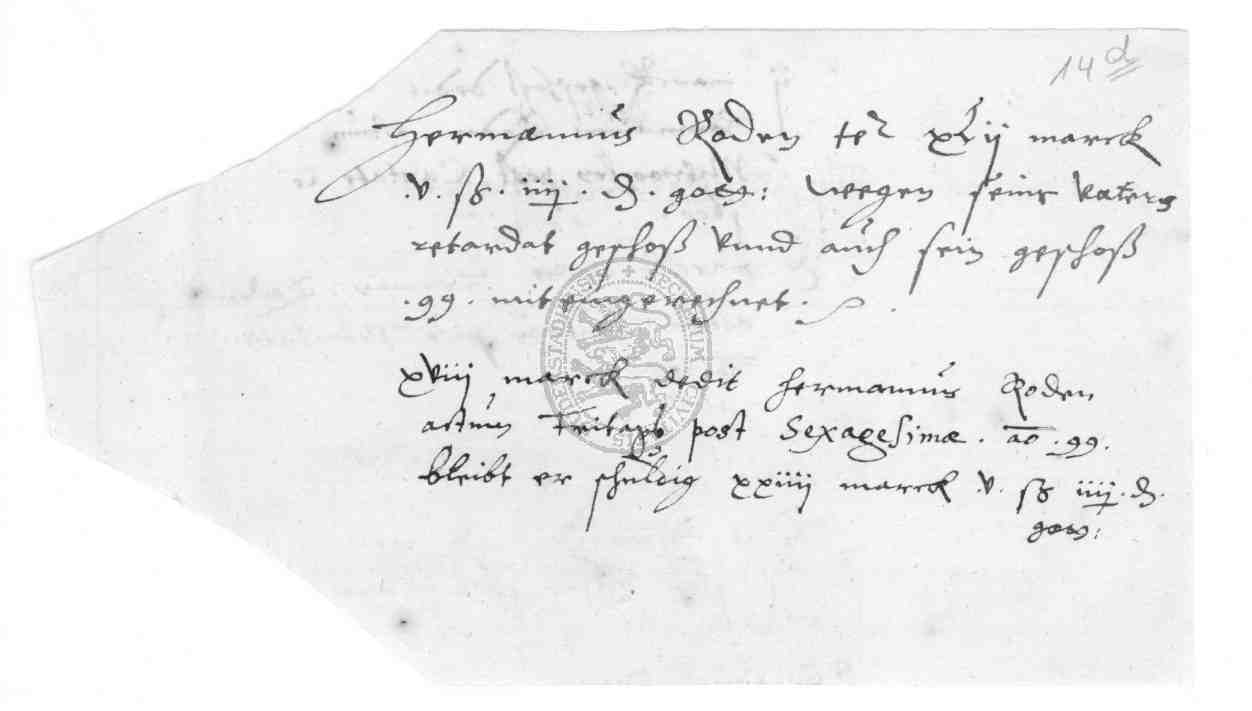 14 d
Hermannus Roden te xLii marck
.v. sß. iiij. d. gosl: wegen seins vaters
retardat geschoß vnnd auch sein geschoß
.99. mit eingerechnet.
xviij marck dedit hermannus Roden
actum freitags post Sexagesimæ. ao .99.
bleibt er schuldig xxiiij marck .v. sß iiij. d.
gosl: